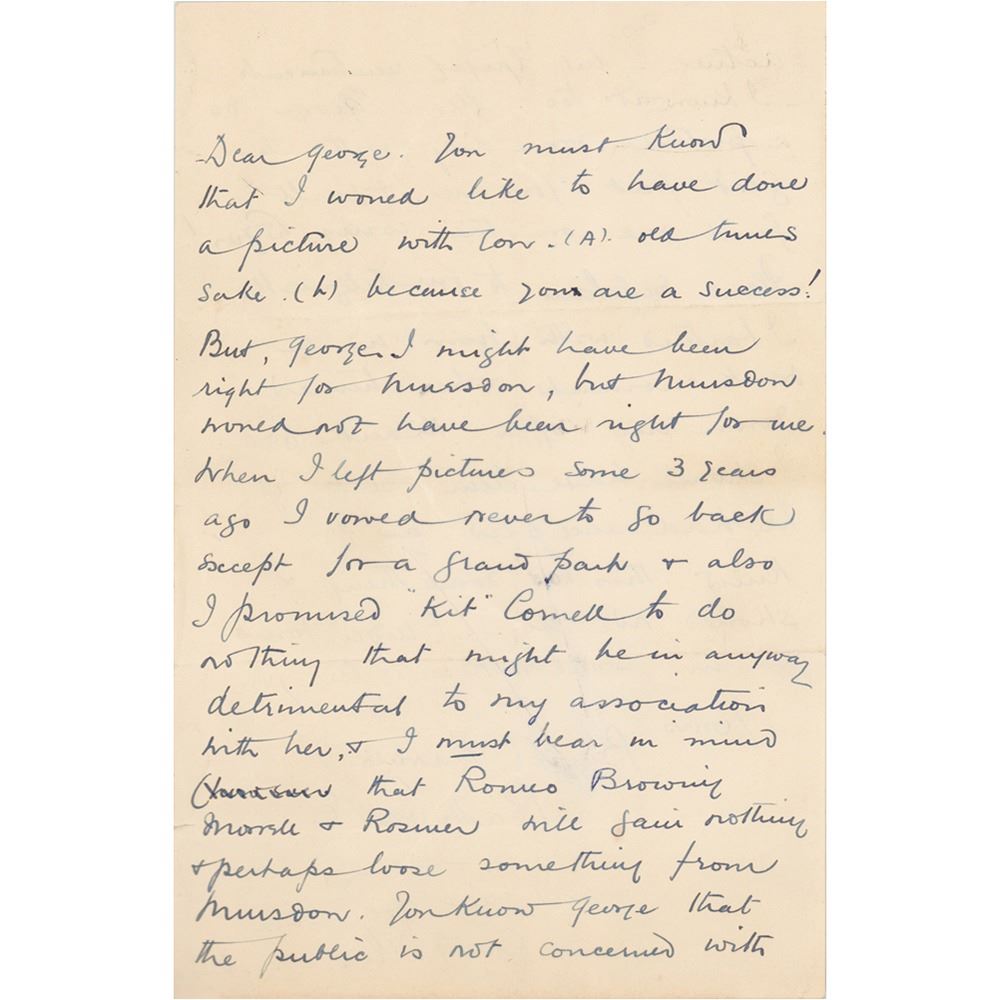 Dear George. You must know
that I would like to have done
a picture with you. (A). old times
sake. (b) because you are a success!
But, George, I might have been
right for Mursdon, but Mursdon
would not have been right for me.
When I left pictures some 3 years
ago I vowed never to go back
except for a grand part & also
I promised "Kit" Cornell to do
nothing that might be in anyway
detrimental to my association
with her, & I must bear in mind
that Romeo Browning
Morell & Rosmer will gain nothing
& perhaps loose something from
Mursdon. You know George that
the public is not concerned with